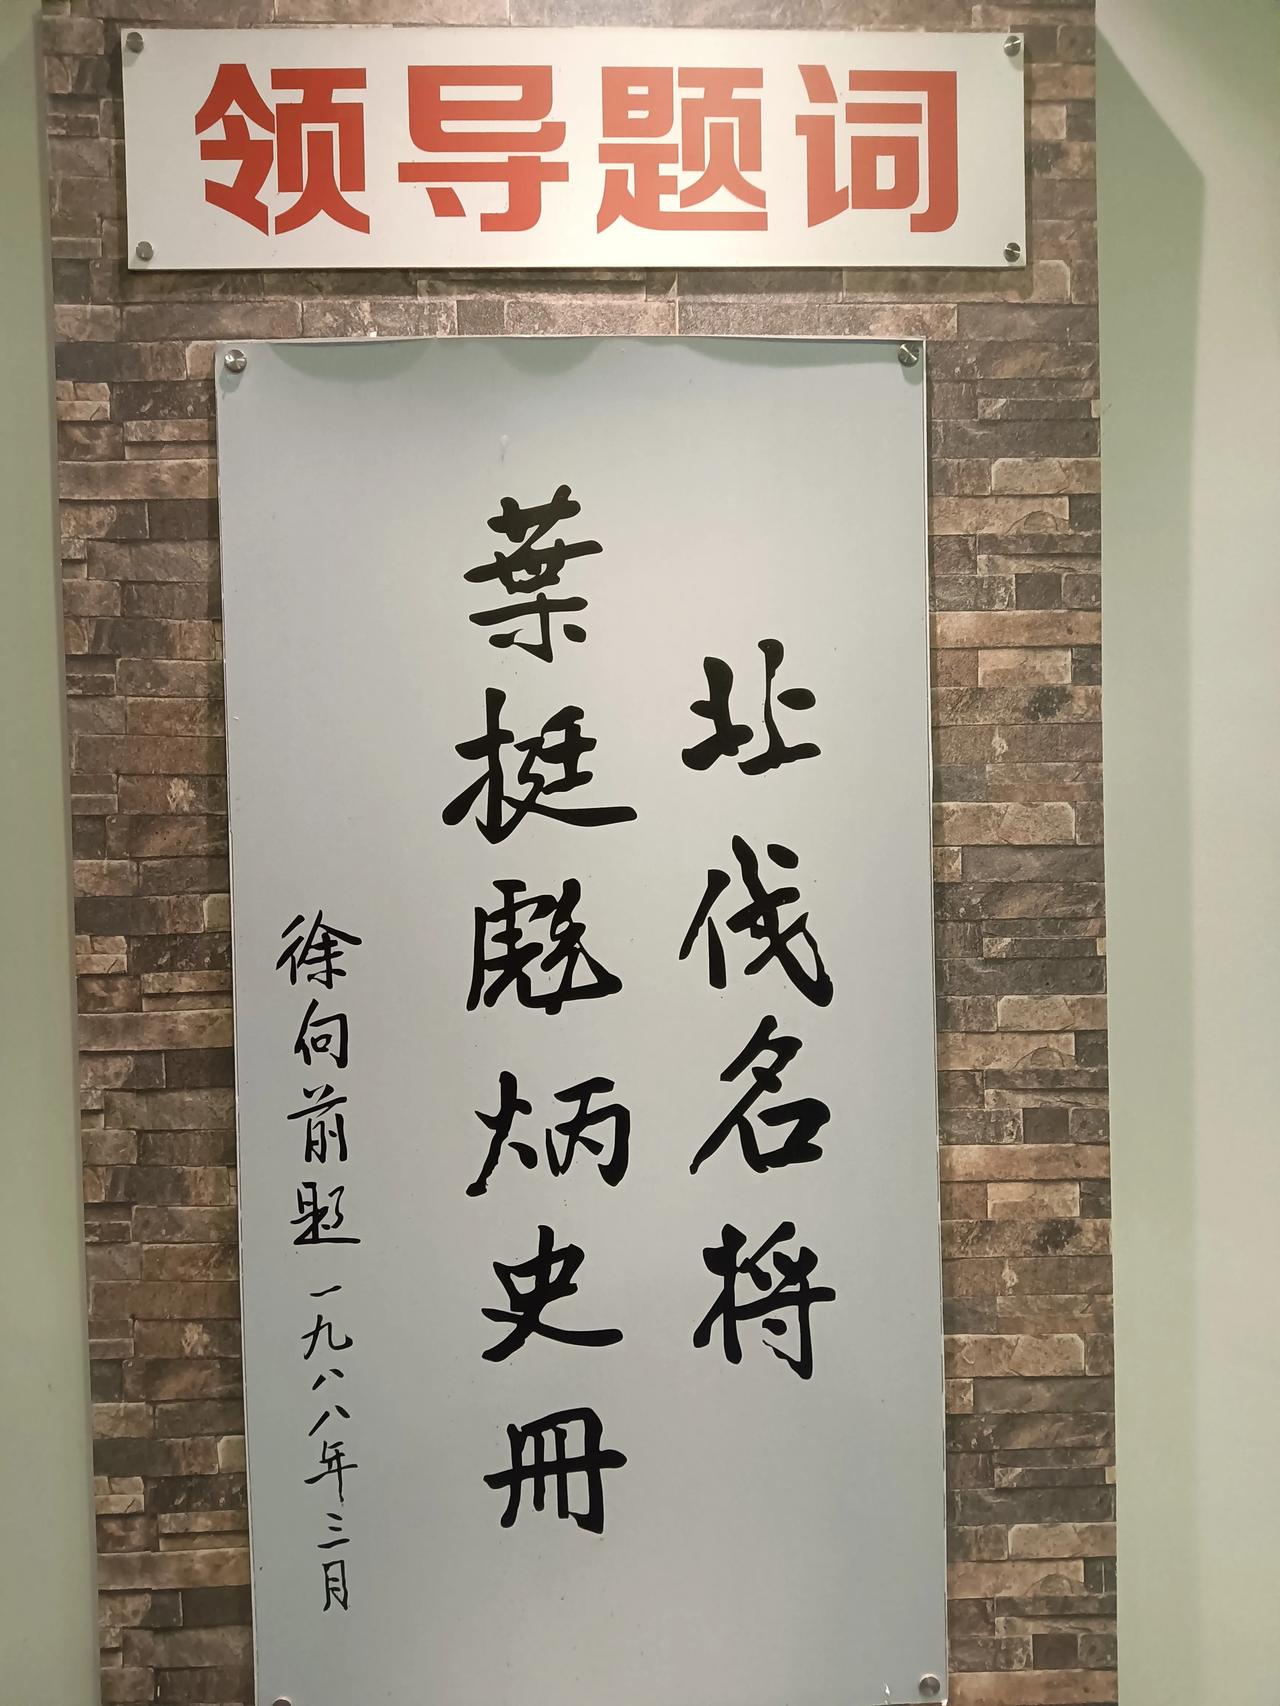 领导题词
北伐名将
葉挺彪炳史冊
徐向前题 一九八八年三月